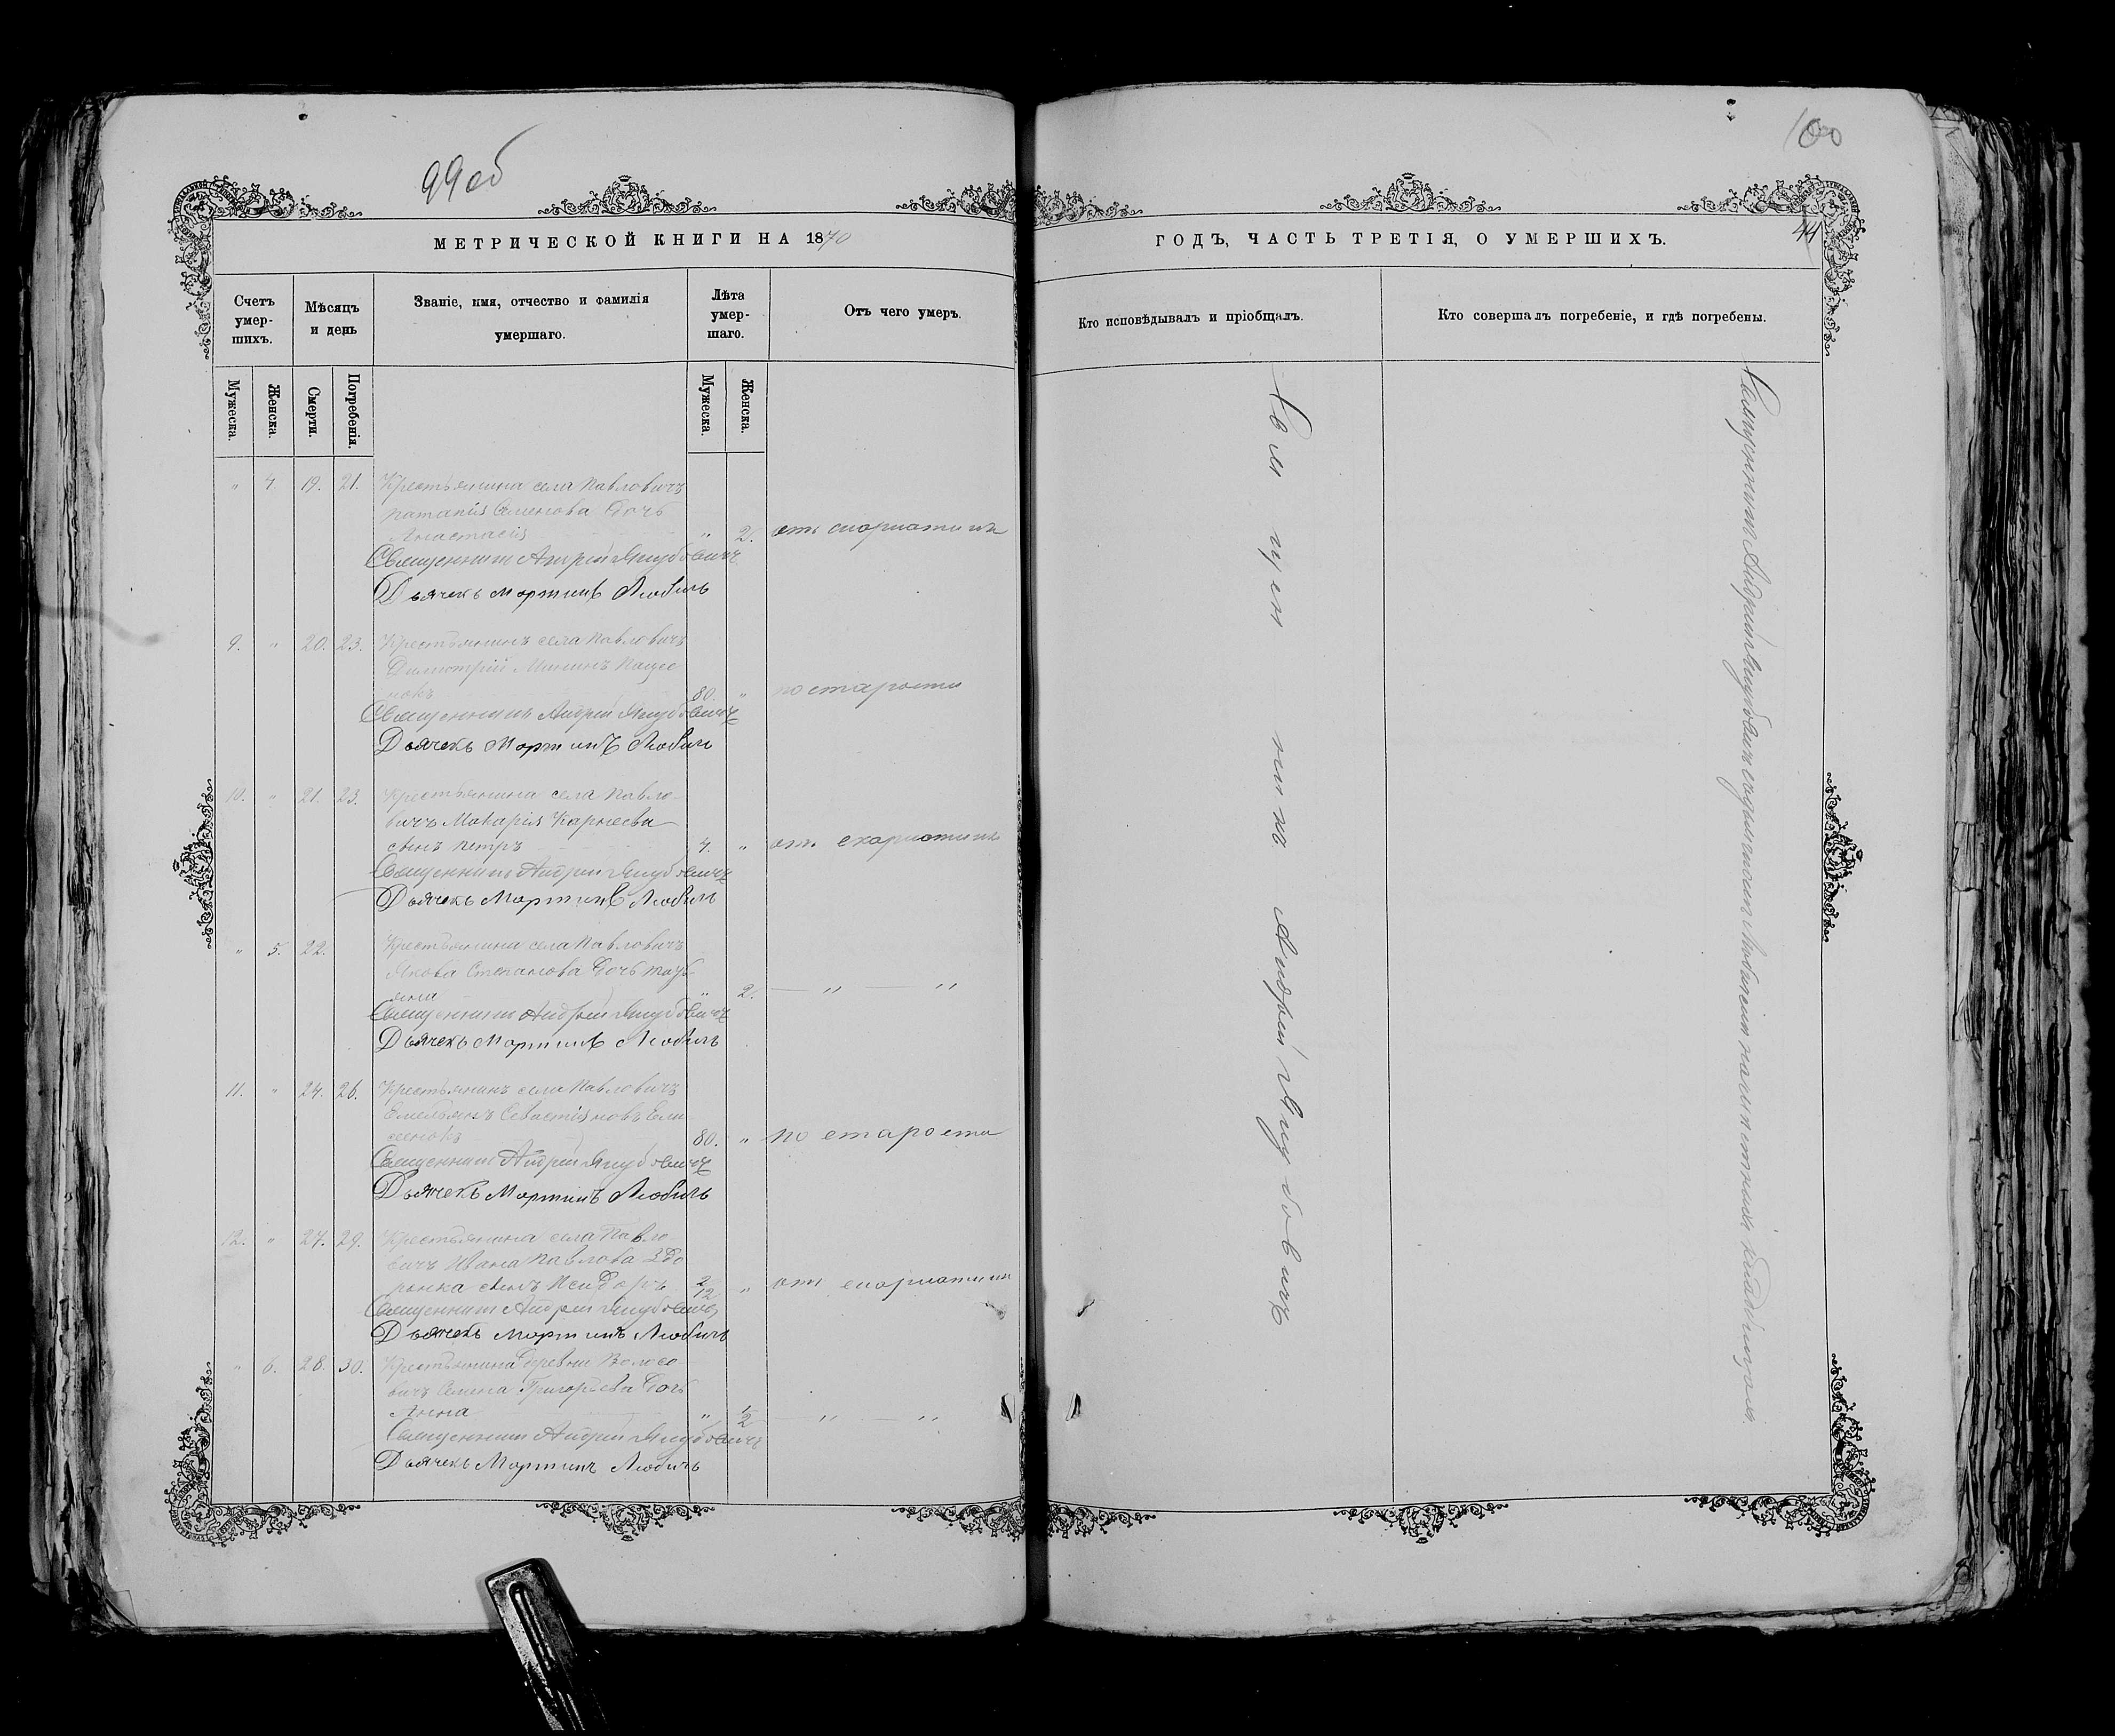 99об
100
44
МЕТРИЧЕСКОЙ КНИГИ НА 1870
ГОДЪ, ЧАСТЬ ТРЕТІЯ, О УМЕРШИХЪ.
Счетъ умер- шихъ.
Мѣсяцъ и день
Званіе, имя, отчество и фамилія
умершаго.
Лѣта умер- шаго.
Отъ чего умеръ.
Кто исповѣдывалъ и пріобщалъ.
Кто совершалъ погребеніе, и гдѣ погребены.
Мужеска.
Женска.
Смерти.
Погребенія.
Мужеска.
Женска.
" 4. 19. 21. Крестьянина села Павловичъ
Семенова дочь
Анастасія " 2. отъ скорлатины
Священникъ Андрей Якубовичъ
Дьячекъ Мартинъ Любичъ
9. " 20. 23. Крестьянинъ села Павловичъ
Димитрій Мининъ Пацее-
нокъ 80. " по старости
Священникъ Андрей Якубовичъ
Дьячекъ Мартинъ Любичъ
10. " 21. 23. Крестьянина села Павло-
вичъ Макарія Карнеева
сынъ Петръ 4. " отъ скарлатины
Священникъ Андрей Якубовичъ
Дьячекъ Мартинъ Любичъ
" 5. 22. Крестьянина села Павловичъ
Якова Степанова дочь
" 2. — " — "
Священникъ Андрей Якубовичъ
Дьячекъ Мартинъ Любичъ
11. " 24. 26. Крестьянинъ села Павловичъ
Емельянъ Севастіяновъ Ели-
сеенокъ 80. " по старости
Священникъ Андрей Якубовичъ
Дьячекъ Мартинъ Любичъ
12. " 27. 29. Крестьянина села Павло-
вичъ Ивана Павлова Здо-
рынка сынъ Исидоръ 2/12 " отъ скорлатины
Священникъ Андрей Якубовичъ
Дьячекъ Мартинъ Любичъ
" 6. 28. 30. Крестьянина деревни Волосо-
вичъ Семена Григорьева дочь
Анна " 1/2 — " — "
Священникъ Андрей Якубовичъ
Дьячекъ Мартинъ Любичъ
Священникъ Андрей Якубовичъ
Священникъ Андрей Якубовичъ съ дьячкомъ Любичемъ на кладбищахъ.